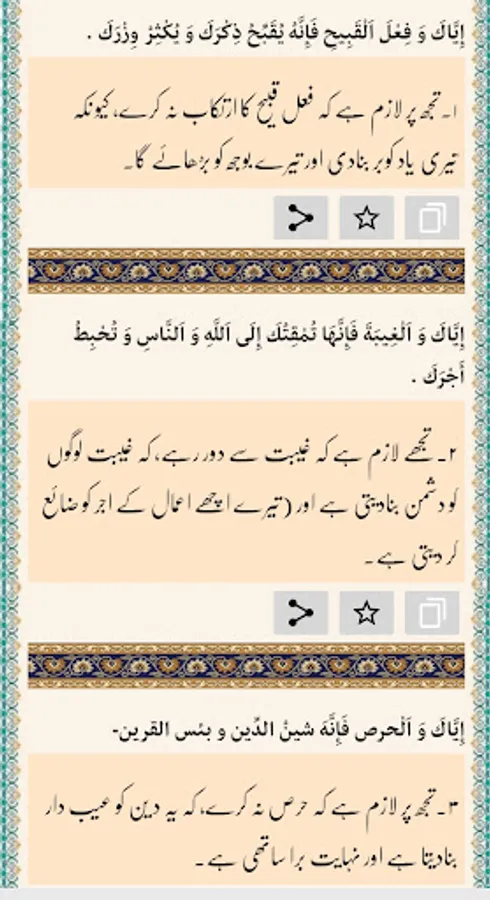 إِيَّاكَ وَ فِعْلَ اَلْقَبِيحِ فَإِنَّهُ يُقَبِّحُ ذِكْرَكَ وَ يُكْثِرُ وِزْرَكَ .
۱۔تجھ پر لازم ہے کہ فعل قبیح کا ارتکاب نہ کرے، کیونکہ
تیری یاد کو بر بنادی اور تیرے بوجھ کو بڑھائے گا۔
إِيَّاكَ وَ اَلْغِيبَةَ فَإِنَّهَا تُمْقِتُكَ إِلَى اَللَّهِ وَ اَلنَّاسِ وَ تُحْبِطُ
أَجْرَكَ .
۲۔تجھے لازم ہے کہ غیبت سے دور رہے، کہ غیبت لوگوں
کو دشمن بنادیتی ہے اور (تیرے اچھے اعمال کے اجر کو ضائع
کر دیتی ہے۔
إِيَّاكَ وَ اَلْحرص فَإِنَّهَ شينُ الدِّين و بئس القرين-
۳۔تجھ پر لازم ہے کہ حرص نہ کرے، کہ یہ دین کو عیب دار
بنادیتا ہے اور نہایت برا ساتھی ہے۔